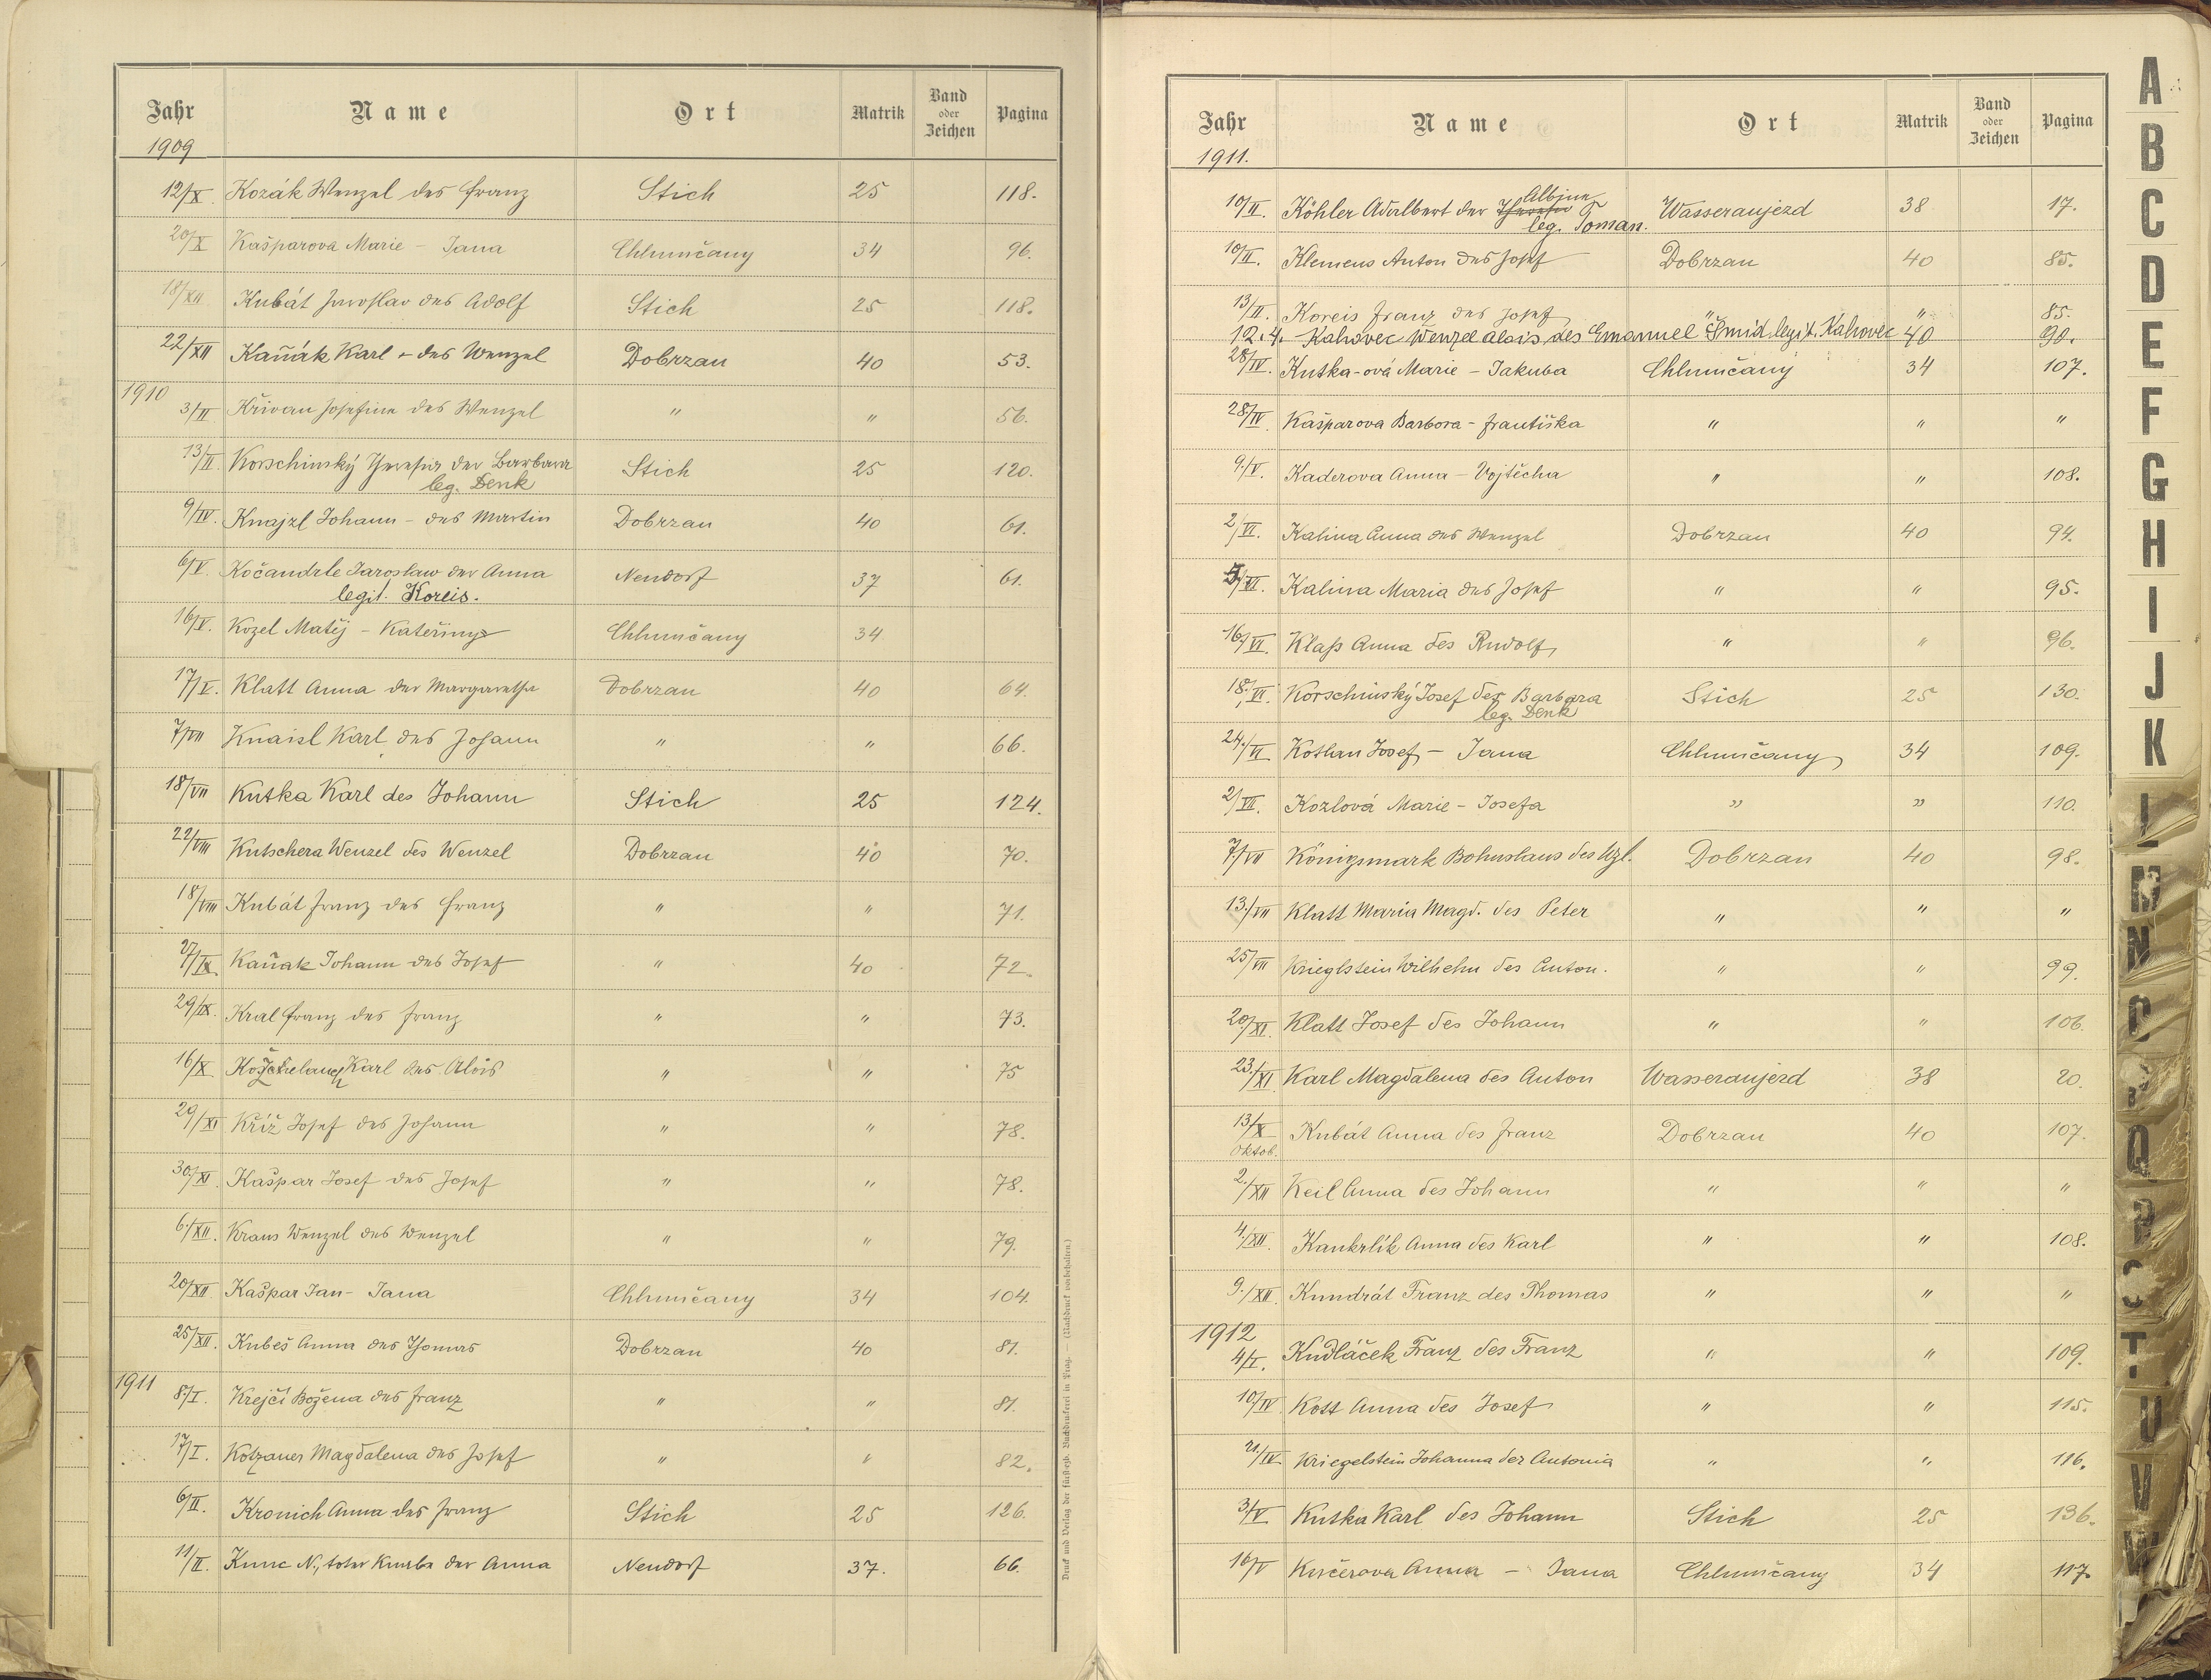 Jahr Name Ort Matrik Band oder Zeichen Pagina
1909
12/X Kozák Wenzel des Franz Stich 25 118.
20/X Kašparova Marie - Jana Chlumčany 34 96.
18/XII Kubát Jaroslav des Adolf Stich 25 118.
22/XII Kaňák Karl - des Wenzel Dobrzan 40 53.
1910
3/II Křivan Josefine des Wenzel " " 56.
13/II. Korschinský Theresia der Barbara Stich 25 120.
leg. Denk
9/IV. Knajzl Johann - des Martin Dobrzan 40 61.
6/V. Kočandrle Jaroslaw der Anna Neudorf 37 61.
legit. Koreis.
16/V. Kozel Matěj - Kateřiny Chlumčany 34
17/V. Klatt Anna der Margaretha Dobrzan 40 64.
7/VII Knaisl Karl des Johann " " 66.
18/VII Kutka Karl des Johann Stich 25 124.
22/VIII Kutschera Wenzel des Wenzel Dobrzan 40 70.
18/VIII Kubát Franz des Franz " " 71.
27/IX. Kaňak Johann des Josef " 40 72.
29/IX. Kral Franz des Franz " " 73.
16/X Karl des Alois " " 75
29/XI Kříž Josef des Johann " " 78.
30/XI. Kašpar Josef des Josef " " 78.
6./XII. Kraus Wenzel des Wenzel " " 79.
20/XII Kašpar Jan - Jana Chlumčany 34 104.
25/XII. Kubeš Anna des Thomas Dobrzan 40 81.
1911 8./I. Krejčí Božena des Franz " " 81.
17/I. Kotzauer Magdalena des Josef " " 82.
6/II. Kronich Anna des Franz Stich 25 126.
11/II. Kunc N., toter Knabe der Anna Neudorf 37. 66.
Druck und Verlag der fürsterzb. Buchdruckerei in Prag. — (Nachdruck vorbehalten.)
Jahr Name Ort Matrik Band oder Zeichen Pagina
1911.
Albine
10/II. Köhler Adalbert der Theresia Wasseraujezd 38 17.
leg. Toman.
10/II. Klemens Anton des Josef Dobrzan 40 85.
13/II. Koreis Franz des Josef " " 85.
12.4. Kahovec Wenzel Alois des Emanuel Šmid legit. Kahovec 40 90.
28/IV. Kutka-ová Marie - Jakuba Chlumčany 34 107.
28/IV. Kašparova Barbora - Františka " " "
9./V. Kaderova Anna - Vojtěcha " " 108.
2/VI. Kalina Anna des Wenzel Dobrzan 40 94.
5/VI. Kalina Maria des Josef " " 95.
16./VI. Klaß Anna des Rudolf " " 96.
18./VI. Korschinský Josef der Barbara Stich 25 130.
leg. Denk
24./VI. Kotlan Josef - Jana Chlumčany 34 109.
2/VII. Kozlová Marie - Josefa " " 110.
7/VII Königsmark Bohuslaus des Wzl. Dobrzan 40 98.
13./VII Klatt Maria Magd. des Peter " " "
25/VII Krieglstein Wilhelm des Anton. " " 99.
20/XI. Klatt Josef des Johann " " 106.
23./XI Karl Magdalena des Anton Wasseraujezd 38 20.
13/X Kubát Anna des Franz Dobrzan 40 107.
Oktob.
2./XII Keil Anna des Johann " " "
4./XII. Kankrlík Anna des Karl " " 108.
9./XII Kundrát Franz des Thomas " " "
1912
4/I. Kudláček Franz des Franz " " 109.
10/IV Kott Anna des Josef " " 115.
21./IV Kriegelstein Johanna der Antonia " " 116.
3/V Kutka Karl des Johann Stich 25 136.
16/V Kučerova Anna - Jana Chlumčany 34 117.
A
B
C
D
E
F
G
H
I
J
K
L
M
N
O
P
Q
R
S
T
U
V
W